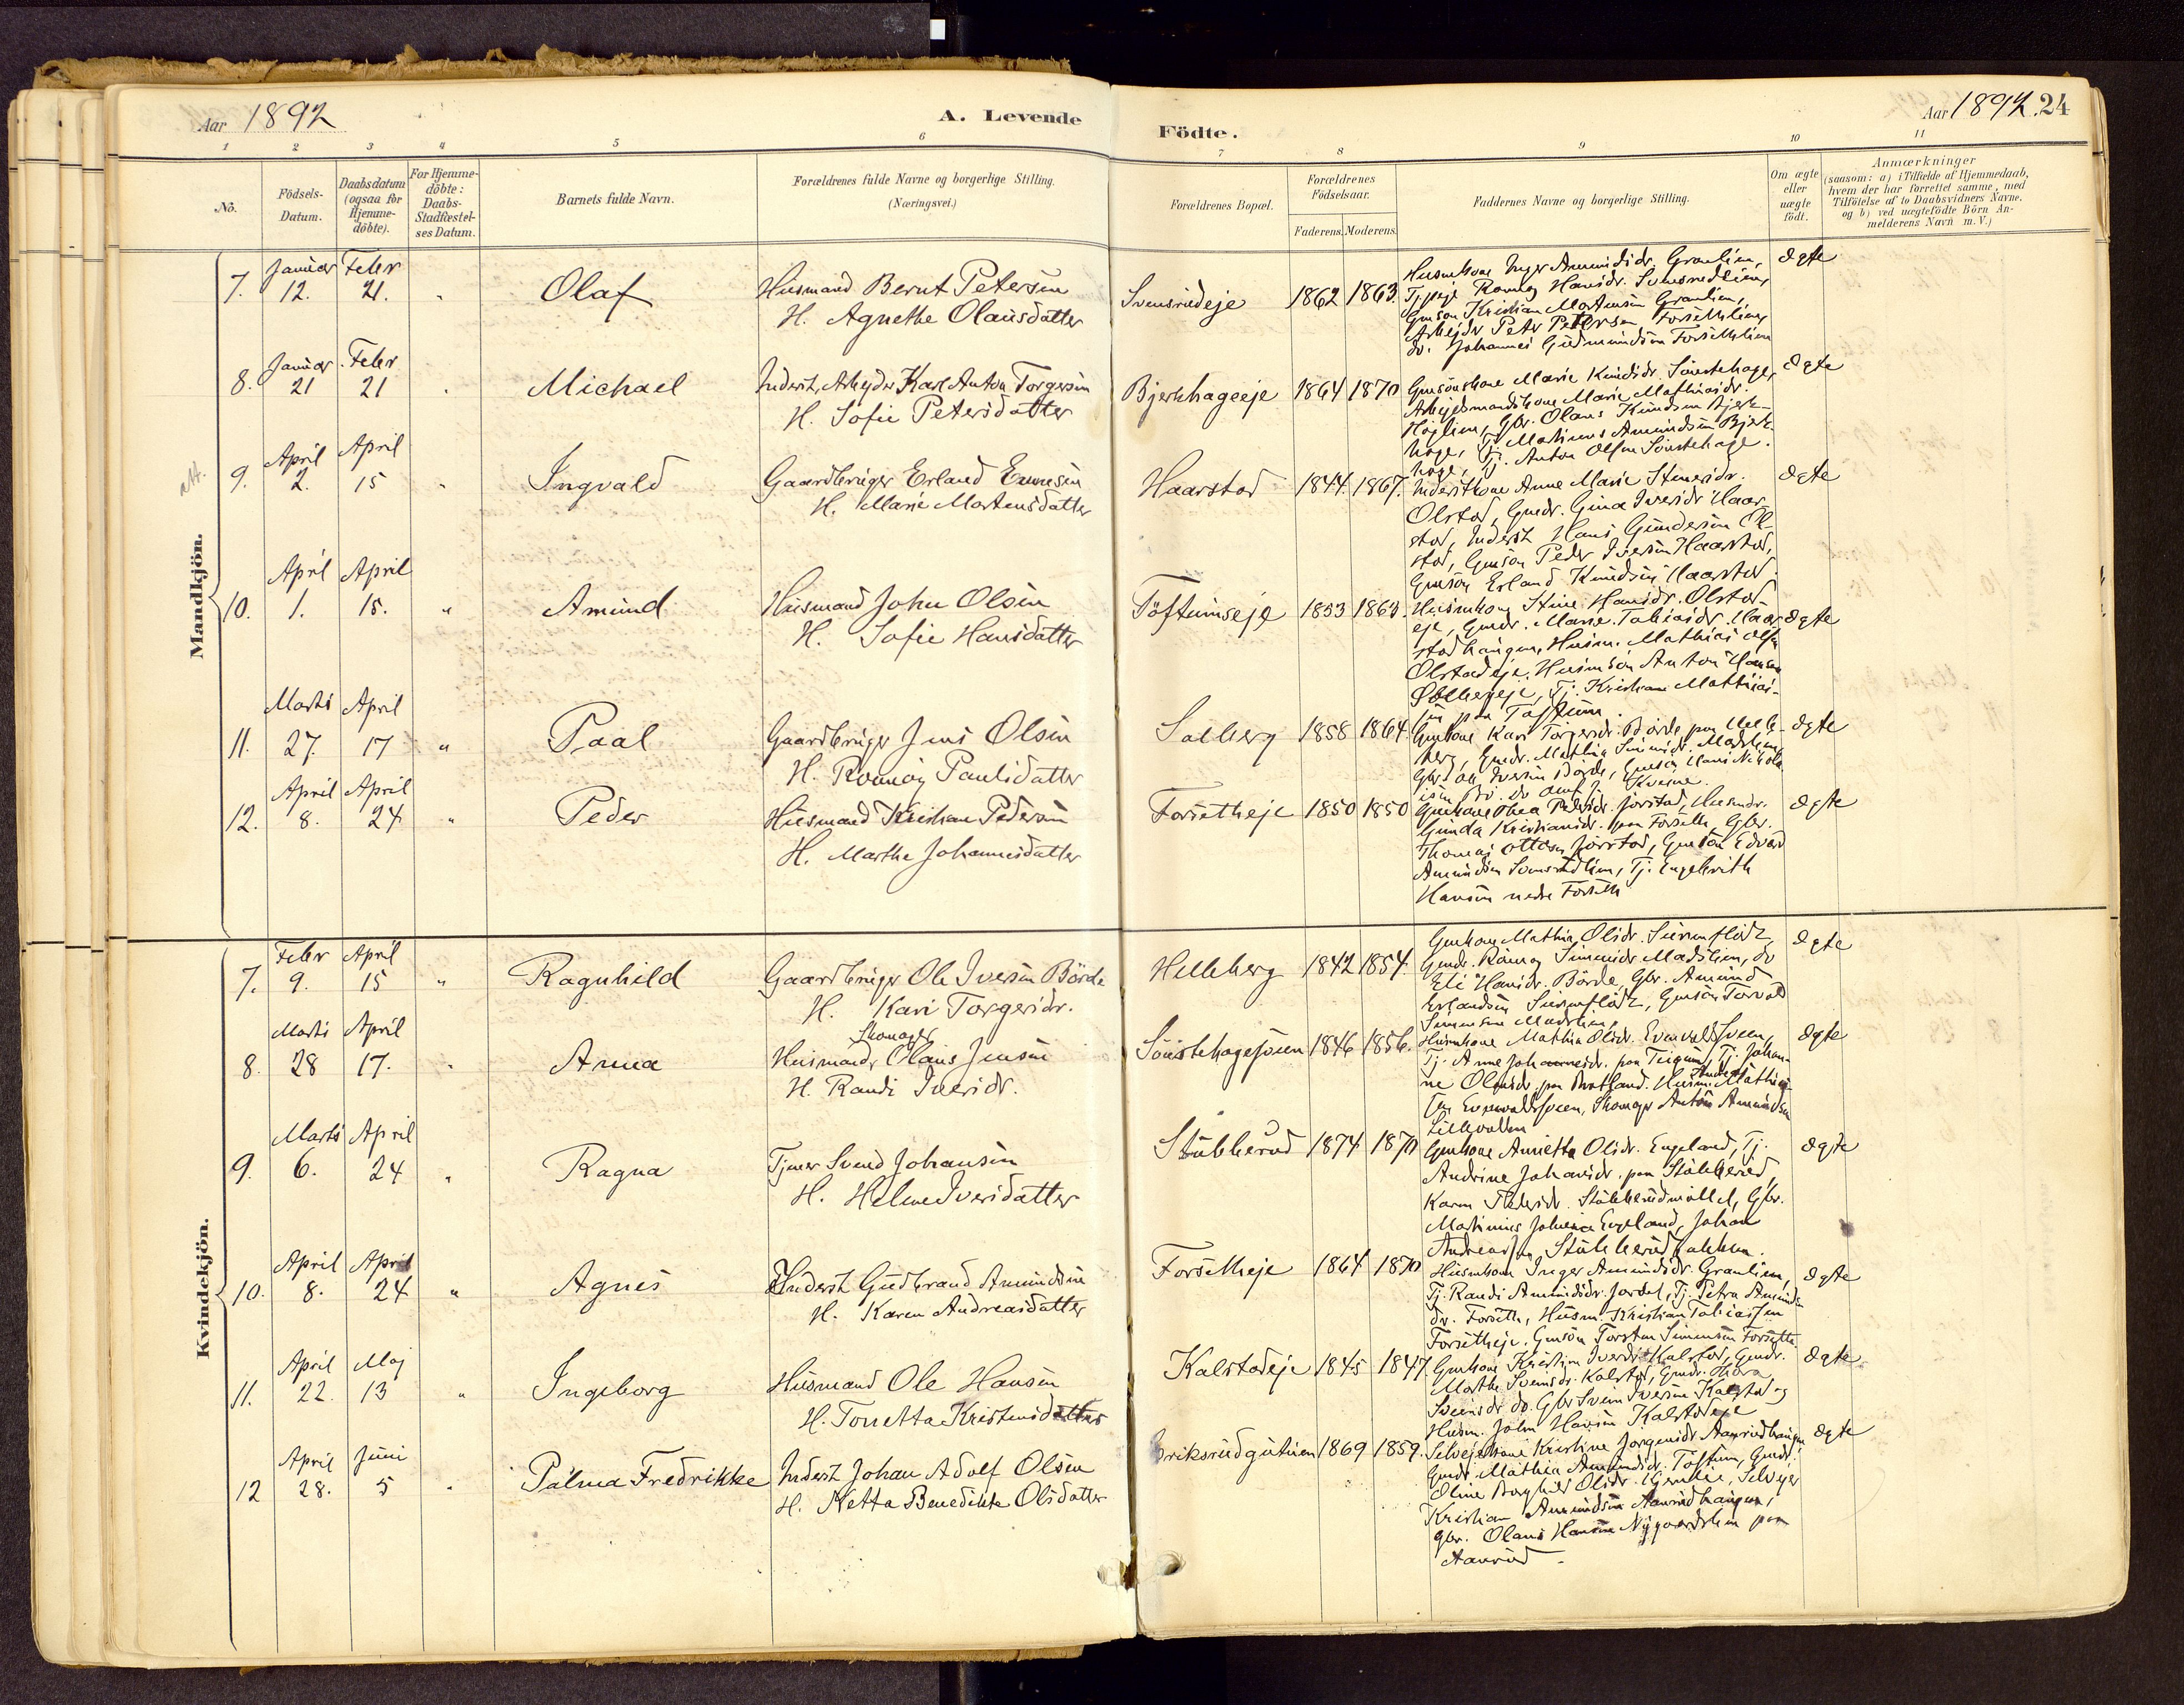 Aar 1892
A. Levende
Födte.
Aar 1892. 24
1 2 3 4 5 6 7 8 9 10 11
No.
Födsels-
Datum.
Daabsdatum
(ogsaa for
Hjemme-
döbte).
For Hjemme-
döbte:
Daabs-
Stadfæstel-
ses Datum.
Barnets fulde Navn.
Forældrenes fulde Navne og borgerlige Stilling.
(Næringsvei.)
Forældrenes Bopæl.
Forældrenes
Födselsaar.
Faderens. Moderens.
Faddernes Navne og borgerlige Stilling.
Om ægte
eller
uægte
födt.
Anmærkninger
(saasom: a) i Tilfælde af Hjemmedaab,
hvem der har forrettet samme, med
Tilföielse af to Daabsvidners Navne.
og b) ved uægtefödte Börn An-
melderens Navn m. V.)
Mandkjön.
Januar Febr
7. 12. 21. " Olaf Husmand Bernt Petersen
H. Agnethe Olausdatter
Svensrudeje 1862 1863. ægte
Husmkone Inger Amundsdr. Graulien,
Tjpige Romøg Hansdr. Svensrudlien,
Gmsøn Kristian Mortensen Graulien,
Arbejder Peter Petersen Forsethlien,
do. Johannes Gudmundsen Forsethlien
Januar Febr
8. 21 21 " Michael Inderst, Arbejder Karl Anton Torgersen
H. Sofie Petersdatter
Bjerkhageeje 1864 1870 ægte
Gmsønskone Marie Knudsdr. Sönstehage,
Arbejdsmandskone Marie Mathiasdr.
Höglien, Gbr. Olaus Knudsen Bjerk-
hage, Tj. Martinus Amundsen Bjerk-
hage, Tj. Anton Olsen Sönstehage.
April April
9. 2. 15 " Ingvald Gaardbruger Erland Evensen
H. Marie Mortensdatter
Haarstad 1844. 1867. ægte
Inderstkone Anne Marie Steneridr.
Olstad, Gmdr. Gina Iversdr Haar-
stad, Inderst Hans Gundersen Ol-
stad, Gmsøn Peder Iversen Haarstad,
Gmsøn Erland Knudsen Haarstad.
April April
10. 1. 15. " Amund Husmand John Olsen
H. Sofie Hansdatter
Töftumseje 1853 1863. ægte
Husmkone Stine Hansdr. Olstad-
eje, Gmdr. Marie Tobiasdr. Haar-
stadhaugen, Husm. Mathias Olsen
Olstadeje, Husmsøn Anton Hansen
Tj. Kristian Mathias-
sen paa Töftum.
Marts April
11. 27. 17 " Paal Gaardbruger Jens Olsen
H. Romøg Paulsdatter
Solberg 1858 1864. ægte
Gmkone Kari Torgersdr. Börde paa Helle-
berg, Gmdr. Mathia Simensdr. Madslien,
Gbr. Ole Iversen Börde, Gmsøn Hans Nikola-
isen Bö.
April April
12. 8. 24 " Peder Husmand Kristian Pedersen
H. Marthe Johannesdatter
Forsetheje 1850 1850 ægte
Gmkone Thea Pedersdr. Jorstad, Husmdr.
Gunda Kristiansdr. paa Forseth, Gbr.
Thomas Ottosen Jorstad, Gmsøn Edvard
Amundsen Svensrudlien, Tj. Engebrith
Hansen nedre Forseth
Kvindekjön.
Febr April
7. 9. 15 " Ragnhild Gaardbruger Ole Iversen Börde
H. Kari Torgersdr.
Helleberg 1842 1854. ægte
Gmkone Mathia Olsdr. Surenflödt,
Gmdr. Romøg Simensdr Madslien, do
Eli Hansdr. Börde, Gbr. Amund
Erlandsen Surenflödt, Gmsøn Torvald
Simensen Madslien,
Marts April
8. 28 17. " Anna Husmand, Skomager Olaus Jensen
H. Randi Iversdr.
Sönstehagesveen 1846 1856. ægte
Husmkone Mathia Olsdr. Evenvoldsveen,
Tj. Anne Johannesdr. paa Tingum, Tj. Johan-
ne Olausdr. paa Brotland. Husm. Anders Mathias-
sen Evenvoldsveen, Skomager Anton Amundsen
Lillevolden
Marts April
9. 6. 24 " Ragna Tjener Svend Johansen
H. Helene Iversdatter
Stubberud 1874 1870 ægte
Gmkone Anietta Olsdr. Engeland, Tj.
Andrine Johansdr. paa Stubberud,
Karen Pedersdr. Stubberudmoldt, Gbr.
Martinius Johnsen Engeland, Johan
Andreassen Stubberudbakken.
April April
10. 8. 24 " Agnes Inderst Gudbrand Amundsen
H. Karen Andreasdatter
Forsetheje 1864 1870 ægte
Husmkone Inger Amundsdr. Graulien,
Tj. Randi Amundsdr. Jordet, Tj. Petra Amunds-
dr. Forseth, Husm. Kristian Tobiassen
Forsetheje. Gmsøn Torsten Simensen Forseth
April Maj
11. 22. 13 " Ingeborg Husmand Ole Hansen
H. Tonetta Kristensdatter
Kalstadeje 1845 1847. ægte
Gmkone Kristine Iversdr. Kalstad, Gmdr.
Marthe Svensdr. Kalstad, Gmdr. Thora
Svensdr. do. Gbr Sven Iversen Kalstad og
Husm. John Hansen Kalstadeje
April Juni
12 28. 5 " Palma Fredrikke Inderst Johan Adolf Olsen
H. Netta Benedikte Olsdatter
Eriksrudgutuen 1869 1859. ægte
Selvejerkone Kristine Jörgensdr Aanrudhaugen
Gmdr. Mathia Amundsdr. Töftum, Gmdr.
Oline Borghild Olsdr. Selvejer
Kristian Amundsen Aanrudhaugen,
Gbr. Olaus Hansen Nygaardslien paa
Aanrud.